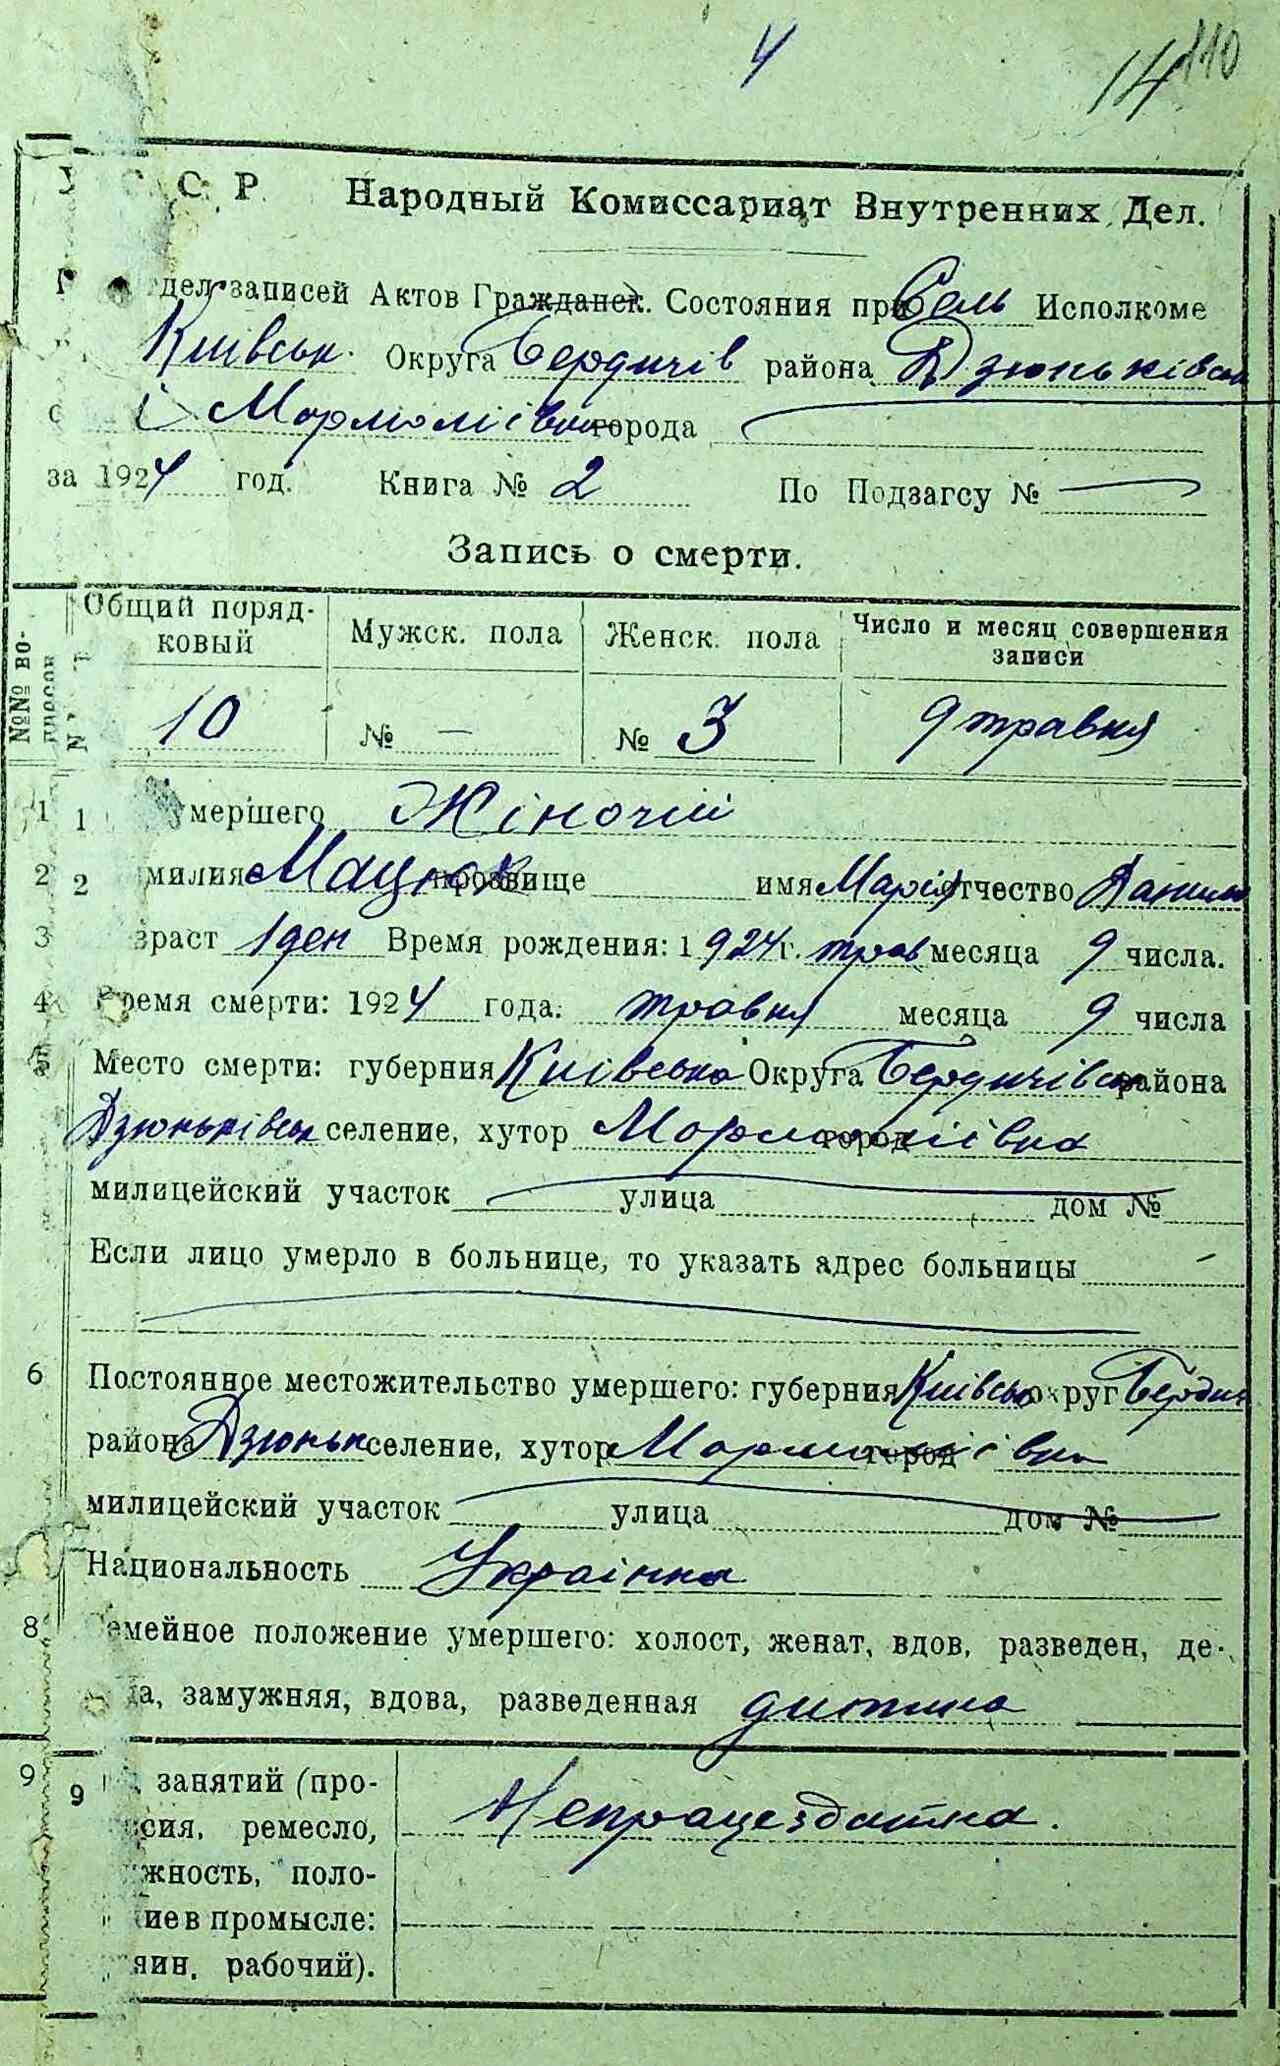 4
14 110
С С Р Народный Комиссариат Внутренних Дел.
дел записей Актов Гражданск. Состояния при Сель Исполкоме
Київськ. Округа Бердичів района Дзюньківськ
с і Мормоліївки города
за 1924 год. Книга № 2 По Подзагсу №
Запись о смерти.
№№ во- Общий поряд- Мужск. пола Женск. пола Число и месяц совершения
просов ковый записи
10 № — № 3 9 травня
1 1 умершего Жіночій
2 2 милия Мацюк прозвище имя Марія отчество Данил
3 зраст 1 ден Время рождения: 1924 г. трав месяца 9 числа.
4 Время смерти: 1924 года. травня месяца 9 числа
5 Место смерти: губерния Київська Округа Бердичівськ района
Дзюньківськ селение, хутор Мормоліївка город
милицейский участок улица дом №
Если лицо умерло в больнице, то указать адрес больницы —
6 Постоянное местожительство умершего: губерния Київськ округ Бердич
района Дзюньк селение, хутор Мормоліївка город
милицейский участок улица дом №
Национальность Українка
8 емейное положение умершего: холост, женат, вдов, разведен, де-
а, замужняя, вдова, разведенная дитина
9 9 занятий (про-
сия, ремесло, Непрацездатна.
жность, поло-
ие в промысле:
яин, рабочий).